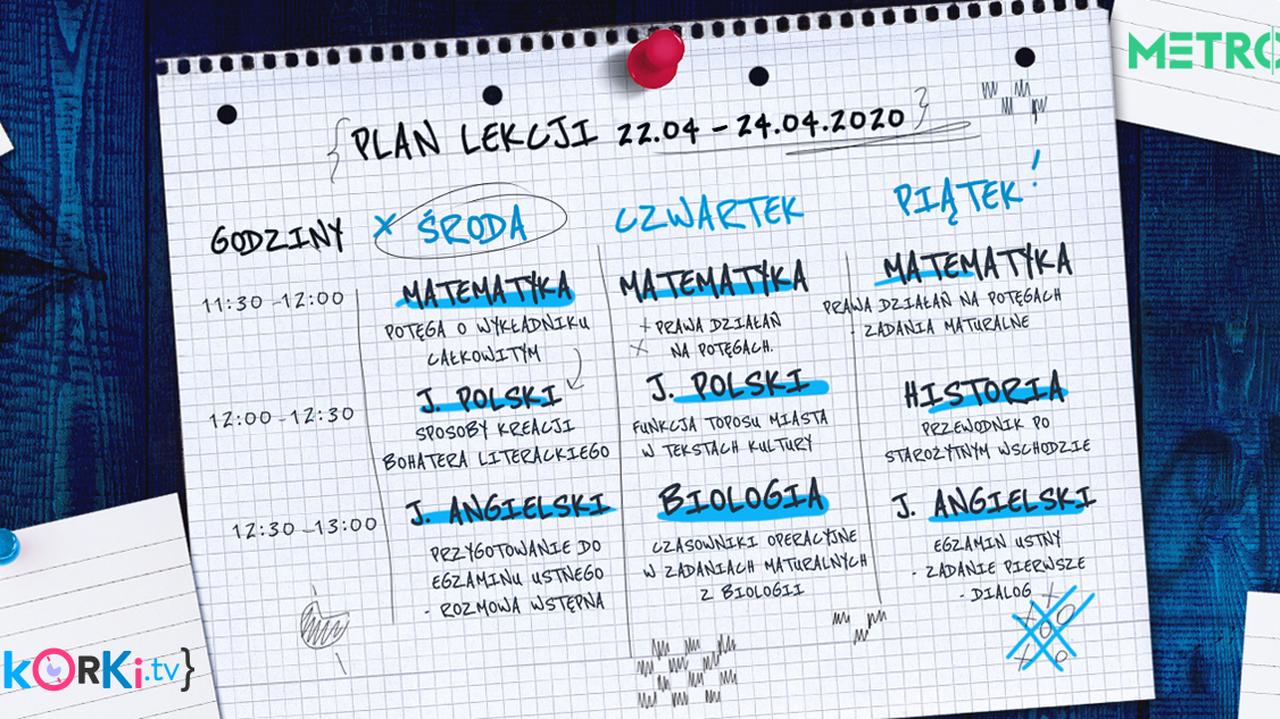 METRO
{PLAN LEKCJI 22.04 - 24.04.2020}
GODZINY
x ŚRODA
CZWARTEK
PIĄTEK!
11:30 -12:00
MATEMATYKA
POTĘGA O WYKŁADNIKU
CAŁKOWITYM
MATEMATYKA
+ PRAWA DZIAŁAŃ
x NA POTĘGACH.
MATEMATYKA
PRAWA DZIAŁAŃ NA POTĘGACH
- ZADANIA MATURALNE
12:00 -12:30
J. POLSKI
SPOSOBY KREACJI
BOHATERA LITERACKIEGO
J. POLSKI
FUNKCJA TOPOSU MIASTA
W TEKSTACH KULTURY
HISTORIA
PRZEWODNIK PO
STAROŻYTNYM WSCHODZIE
12:30 -13:00
J. ANGIELSKI
PRZYGOTOWANIE DO
EGZAMINU USTNEGO
- ROZMOWA WSTĘPNA
BIOLOGIA
CZASOWNIKI OPERACYJNE
W ZADANIACH MATURALNYCH
Z BIOLOGII
J. ANGIELSKI
EGZAMIN USTNY
- ZADANIE PIERWSZE
- DIALOG
kORKi.tv}